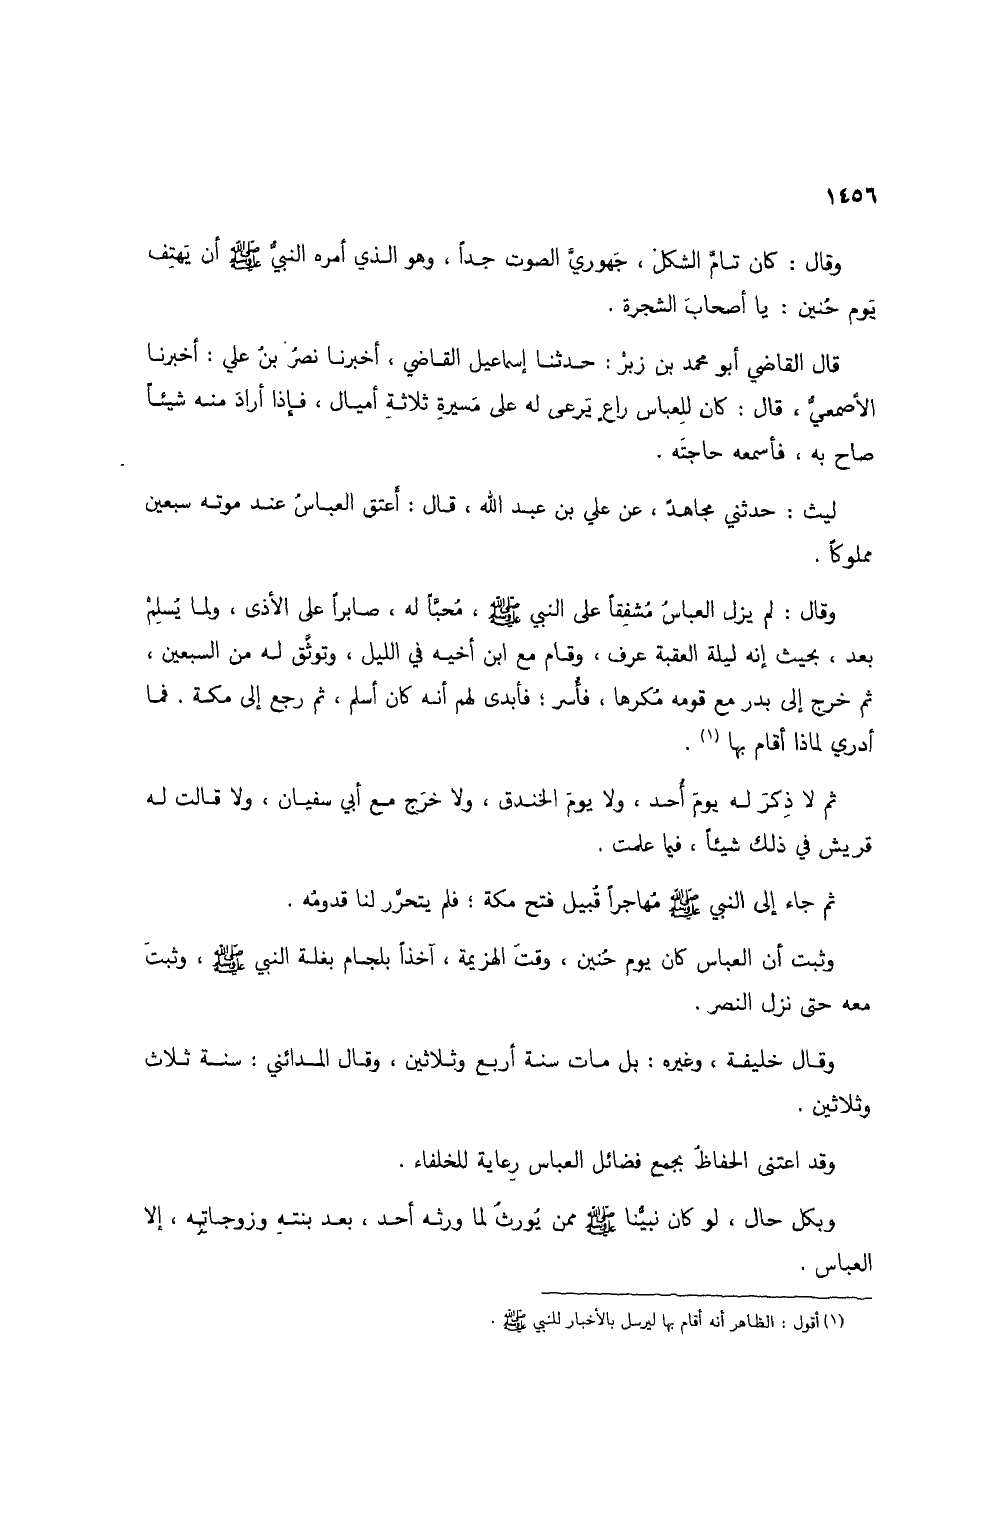 ١٤٥٦
وقال : كان تامَّ الشكلْ ، جَهوريَّ الصوت جداً ، وهو الذي أمره النبيُّ ﷺ أن يَهتِف
يَوم حُنين : يا أصحابَ الشجرة .
قال القاضي أبو محمد بن زبرْ : حدثنا إسماعيل القاضي ، أخبرنا نصرُ بنُ علي : أخبرنا
الأصمعيُّ ، قال : كان للعباس راعٍ يَرعى له على مَسيرةِ ثلاثةِ أميال ، فإذا أرادَ منه شيئاً
صاح به ، فأسمعه حاجتَه .
ليث : حدثني مجاهدٌ ، عن علي بن عبد الله ، قال : أَعتق العباسُ عند موته سبعين
مملوكاً .
وقال : لم يزل العباسُ مُشفِقاً على النبي ﷺ ، مُحبَّاً له ، صابراً على الأذى ، ولما يُسلِمْ
بعد ، بحيث إنه ليلة العقبة عرف ، وقام مع ابن أخيه في الليل ، وتوثَّق له من السبعين ،
ثم خرج إلى بدر مع قومه مُكرها ، فأُسر ؛ فأبدى لهم أنه كان أسلم ، ثم رجع إلى مكة . فما
أدري لماذا أقام بها (١) .
ثم لا ذِكرَ له يومَ أُحد ، ولا يومَ الخندق ، ولا خرَج مع أبي سفيان ، ولا قالت له
قريش في ذلك شيئاً ، فيما علمت .
ثم جاء إلى النبي ﷺ مُهاجراً قُبيل فتح مكة ؛ فلم يتحرَّر لنا قدومُه .
وثبت أن العباس كان يوم حُنين ، وقتَ الهزيمة ، آخذاً بلجام بغلة النبي ﷺ ، وثبتَ
معه حتى نزل النصر .
وقال خليفة ، وغيره : بل مات سنة أربع وثلاثين ، وقال المدائني : سنة ثلاث
وثلاثين .
وقد اعتنى الحفاظُ بجمع فضائل العباس رِعاية للخلفاء .
وبكل حال ، لو كان نبيُّنا ﷺ ممن يُورثُ لما ورثه أحد ، بعد بنتهِ وزوجاتِه ، إلا
العباس .
(١) أقول : الظاهر أنه أقام بها ليرسل بالأخبار للنبي ﷺ .